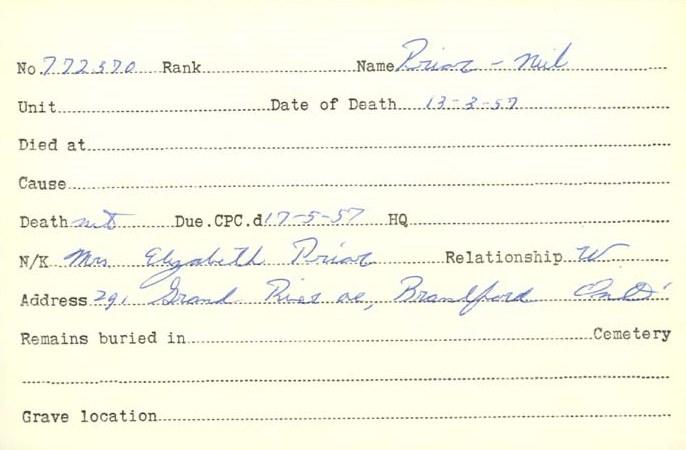 No. 772370 Rank Name Prior - Neil
Unit Date of Death 13-3-57
Died at
Cause
Death Due.CPC.d 17-5-57 HQ
N/K Mrs Elizabeth Prior Relationship W
Address 29, Grand River Brantford Ont
Remains buried in Cemetery
Grave location